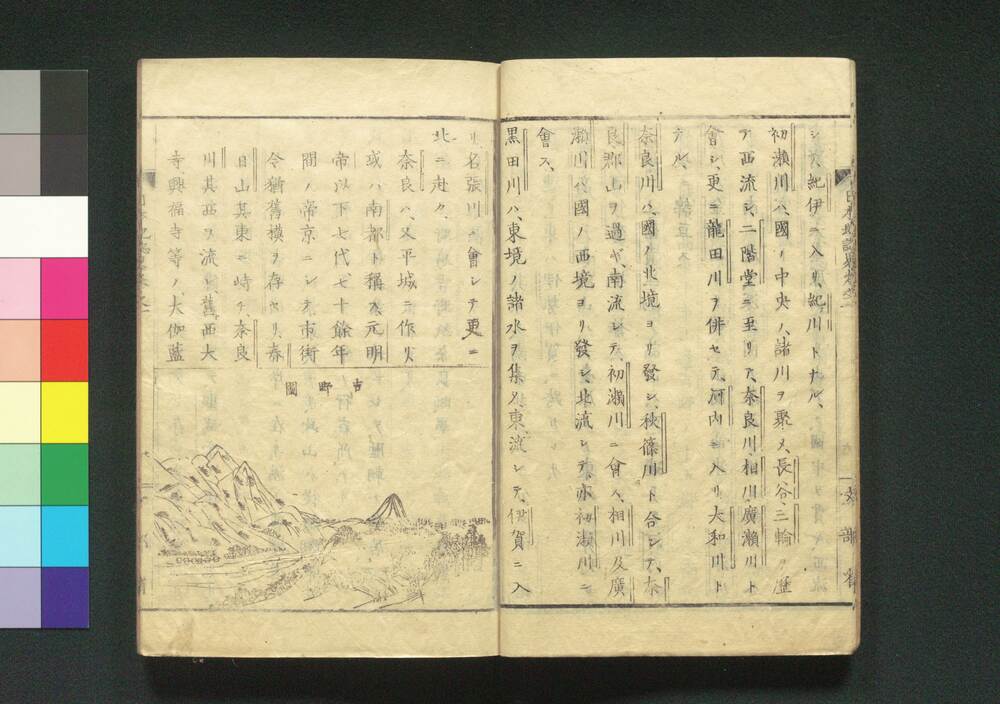 シテ、紀伊ニ入リ、紀川トナル、
初瀬川ハ、國ノ中央ノ、諸川ヲ聚メ、長谷三輪ヲ歴
テ西流シ、二階堂ニ至リテ、奈良川、相川廣瀬川ト
會シ、更ニ龍田川ヲ併セテ、河内ニ入リ、大和川ト
ナル、
奈良川ハ、國ノ北境ヨリ發シ、秋篠川ト合シテ、奈
良郡山ヲ過ギ、南流シテ、初瀬川ニ會ヘ、相川及廣
瀬川ハ、國ノ西境ヨリ發シ、北流シテ、亦初瀬川ニ
會ス、
黒田川ハ、東境ノ諸水ヲ集メ、東流シテ、伊賀ニ入
リ、名張川ニ會シテ更ニ
北ニ赴ク、
奈良ハ、又平城ニ作リ
或ハ南都ト稱ス、元明
帝以下七代、七十餘年
間ノ帝京ニシテ、市街
今猶舊模ヲ存セリ、春
日山其東ニ峙チ、奈良
川其西ヲ流ル、舊西大
寺、興福寺等ノ、大伽藍
吉野圖